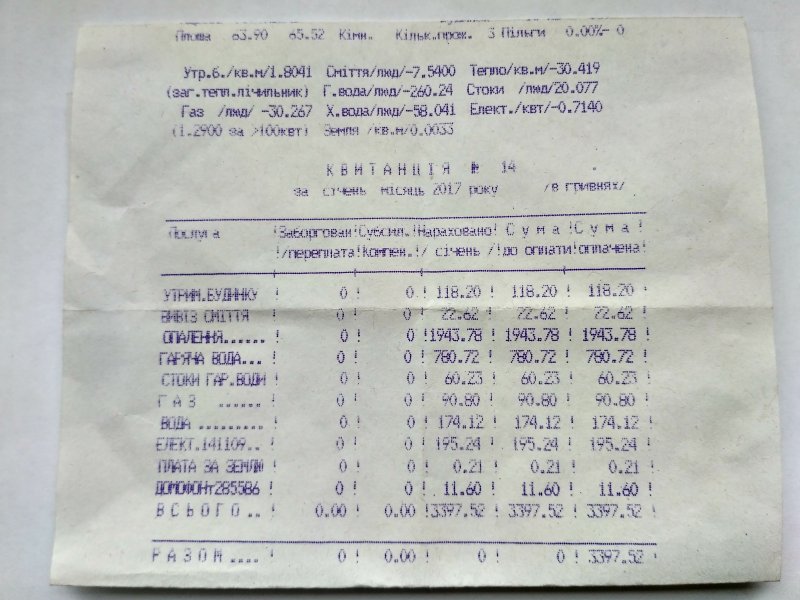 Площа 63.90 65.52 Кімн. Кільк.прож. 3 Пільги 0.00%- 0
Утр.б./кв.м/1.8041 Сміття/люд/-7.5400 Тепло/кв.м/-30.419
(заг.тепл.лічильник) Г.вода/люд/-260.24 Стоки /люд/20.077
Газ /люд/ -30.267 Х.вода/люд/-58.041 Елект./квт/-0.7140
(1.2900 за >100квт) Земля /кв.м/0.0033
К В И Т А Н Ц І Я № 14
за січень місяць 2017 року /в гривнях/
Послуга !Заборгован!Субсид.!Нараховано!С у м а !С у м а !
!/переплата!Компен.!/ січень /!до оплати!оплачена!
УТРИМ.БУДИНКУ ! 0 ! 0 ! 118.20 ! 118.20 ! 118.20 !
ВИВІЗ СМІТТЯ ! 0 ! 0 ! 22.62 ! 22.62 ! 22.62 !
ОПАЛЕННЯ...... ! 0 ! 0 !1943.78 ! 1943.78 ! 1943.78 !
ГАРЯЧА ВОДА... ! 0 ! 0 ! 780.72 ! 780.72 ! 780.72 !
СТОКИ ГАР.ВОДИ ! 0 ! 0 ! 60.23 ! 60.23 ! 60.23 !
Г А З ...... ! 0 ! 0 ! 90.80 ! 90.80 ! 90.80 !
ВОДА ......... ! 0 ! 0 ! 174.12 ! 174.12 ! 174.12 !
ЕЛЕКТ.141109.. ! 0 ! 0 ! 195.24 ! 195.24 ! 195.24 !
ПЛАТА ЗА ЗЕМЛЮ ! 0 ! 0 ! 0.21 ! 0.21 ! 0.21 !
ДОМОФОНт285586 ! 0 ! 0 ! 11.60 ! 11.60 ! 11.60 !
В С Ь О Г О .. ! 0.00 ! 0.00 !3397.52 ! 3397.52 ! 3397.52 !
Р А З О М .... ! 0 ! 0.00 ! 0 ! 0 ! 3397.52 !